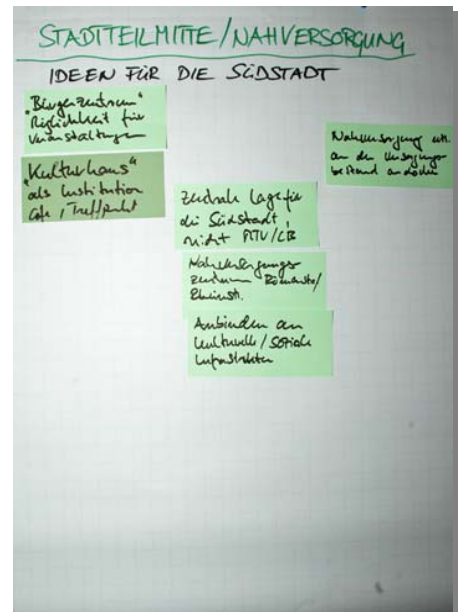 STADTTEILMITTE/NAHVERSORGUNG
IDEEN FÜR DIE SÜDSTADT
"Bürgerzentrum"
Möglichkeit für
Veranstaltungen
"Kulturhaus"
als Institution
Cafe, Treffpunkt
Zentrale Lage für
die Südstadt,
nicht
Nahversorgungs-
zentrum Römerstr/
Rheinstr.
Anbinden an
kulturelle/soziale
Infrastruktur
Nahversorgung
an den Versorgungs
bestand andocken